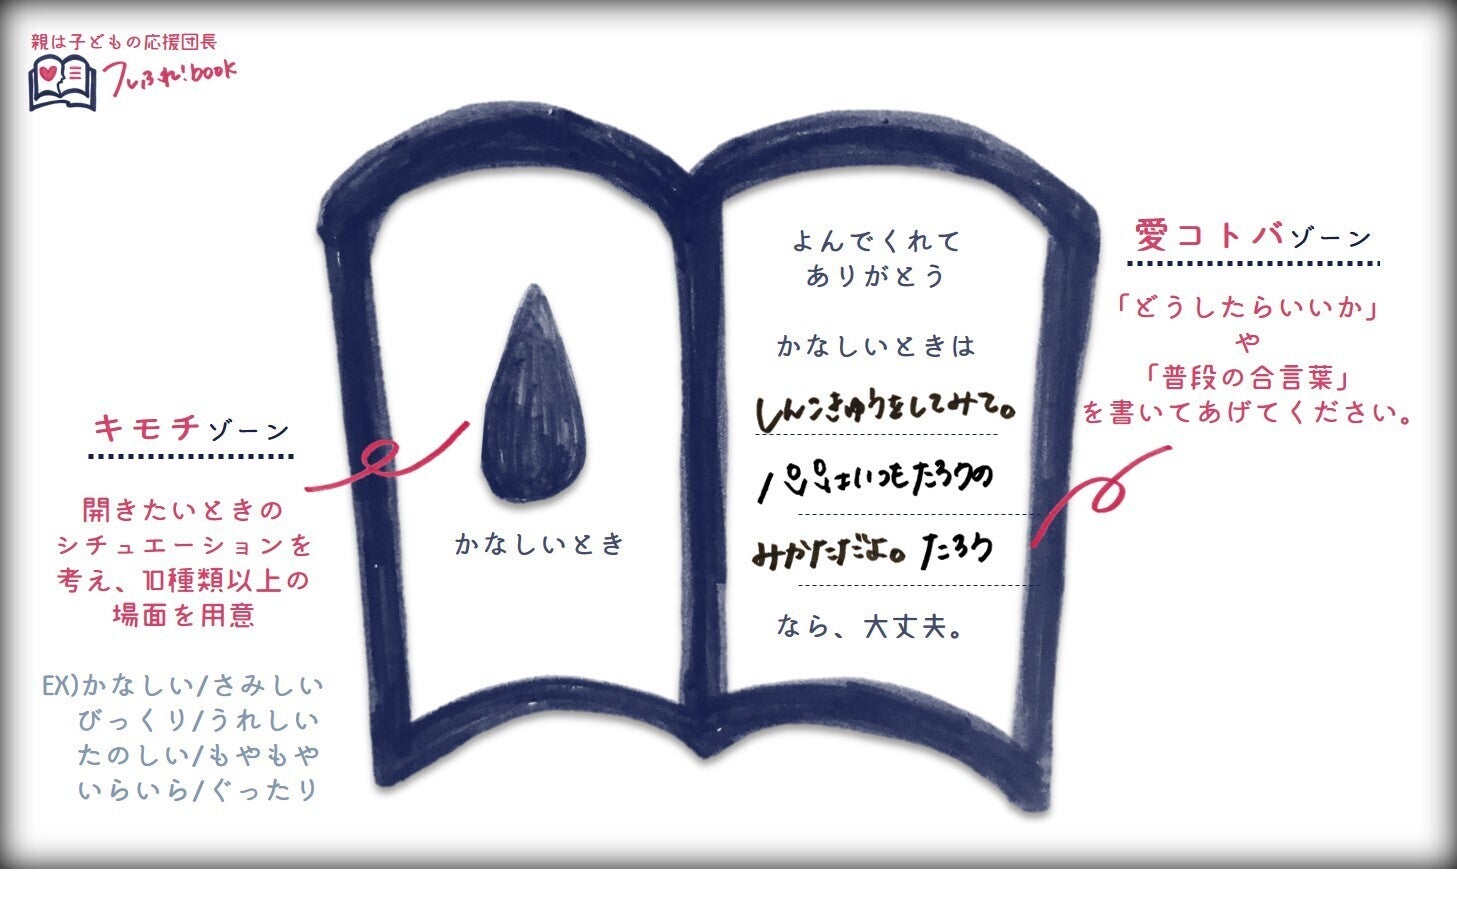 親は子どもの応援団長
フレふれ!book
よんでくれて
ありがとう
かなしいときは
しんこきゅうをしてみて。
パパはいつもたろうの
みかただよ。たろう
なら、大丈夫。
かなしいとき
キモチゾーン
開きたいときの
シチュエーションを
考え、10種類以上の
場面を用意
EX)かなしい/さみしい
びっくり/うれしい
たのしい/もやもや
いらいら/ぐったり
愛コトバゾーン
「どうしたらいいか」
や
「普段の合言葉」
を書いてあげてください。